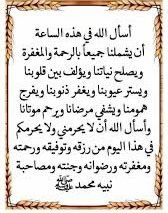 أسأل الله في هذه الساعة
أن يشملنا جميعاً بالرحمة والمغفرة
ويصلح نياتنا ويؤلف بين قلوبنا
ويستر عيوبنا ويغفر ذنوبنا ويفرج
همومنا ويشفي مرضانا ويرحم موتانا
وأسأل الله أن لا يحرمني ولا يحرمكم
في هذا اليوم من رزقه وتوفيقه ورحمته
ومغفرته ورضوانه وجنته ومصاحبة
نبيه محمد ﷺ